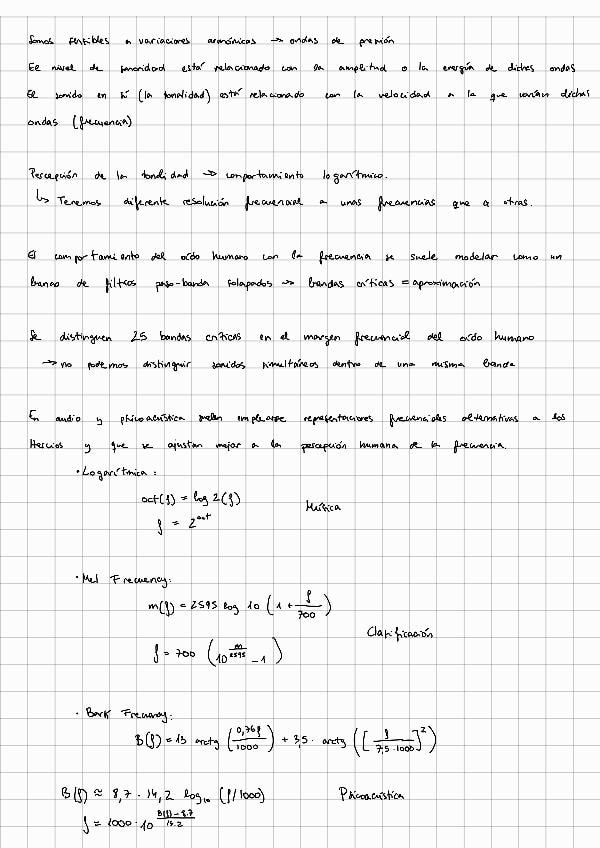 Somos sensibles a variaciones armónicas → ondas de presión
El nivel de sonoridad está relacionado con la amplitud o la energía de dichas ondas
El sonido en sí (la tonalidad) está relacionado con la velocidad a la que varían dichas
ondas (frecuencia)
Percepción de la tonalidad → comportamiento logarítmico.
↳ Tenemos diferente resolución frecuencial a unas frecuencias que a otras.
El comportamiento del oído humano con la frecuencia se suele modelar como un
banco de filtros paso-banda solapados → bandas críticas = aproximación
Se distinguen 25 bandas críticas en el margen frecuencial del oído humano
→ no podemos distinguir sonidos simultáneos dentro de una misma banda
En audio y psicoacústica suelen emplearse representaciones frecuenciales alternativas a los
Hercios y que se ajustan mejor a la percepción humana de la frecuencia.
• Logarítmica:
oct(f) = log 2(f)
Música
f = 2^oct
• Mel Frecuency:
m(f) = 2595 log 10 (1 + f/700)
Clasificación
f = 700 (10^(m/2595) - 1)
• Bark Frecuency:
B(f) = 13 arctg (0,76f/1000) + 3,5 · arctg ([f/7,5·1000]^2)
B(f) ≈ 8,7 · 14,2 log₁₀ (f/1000)
Psicoacústica
f = 1000 · 10^((B(f) - 8.7)/14.2)